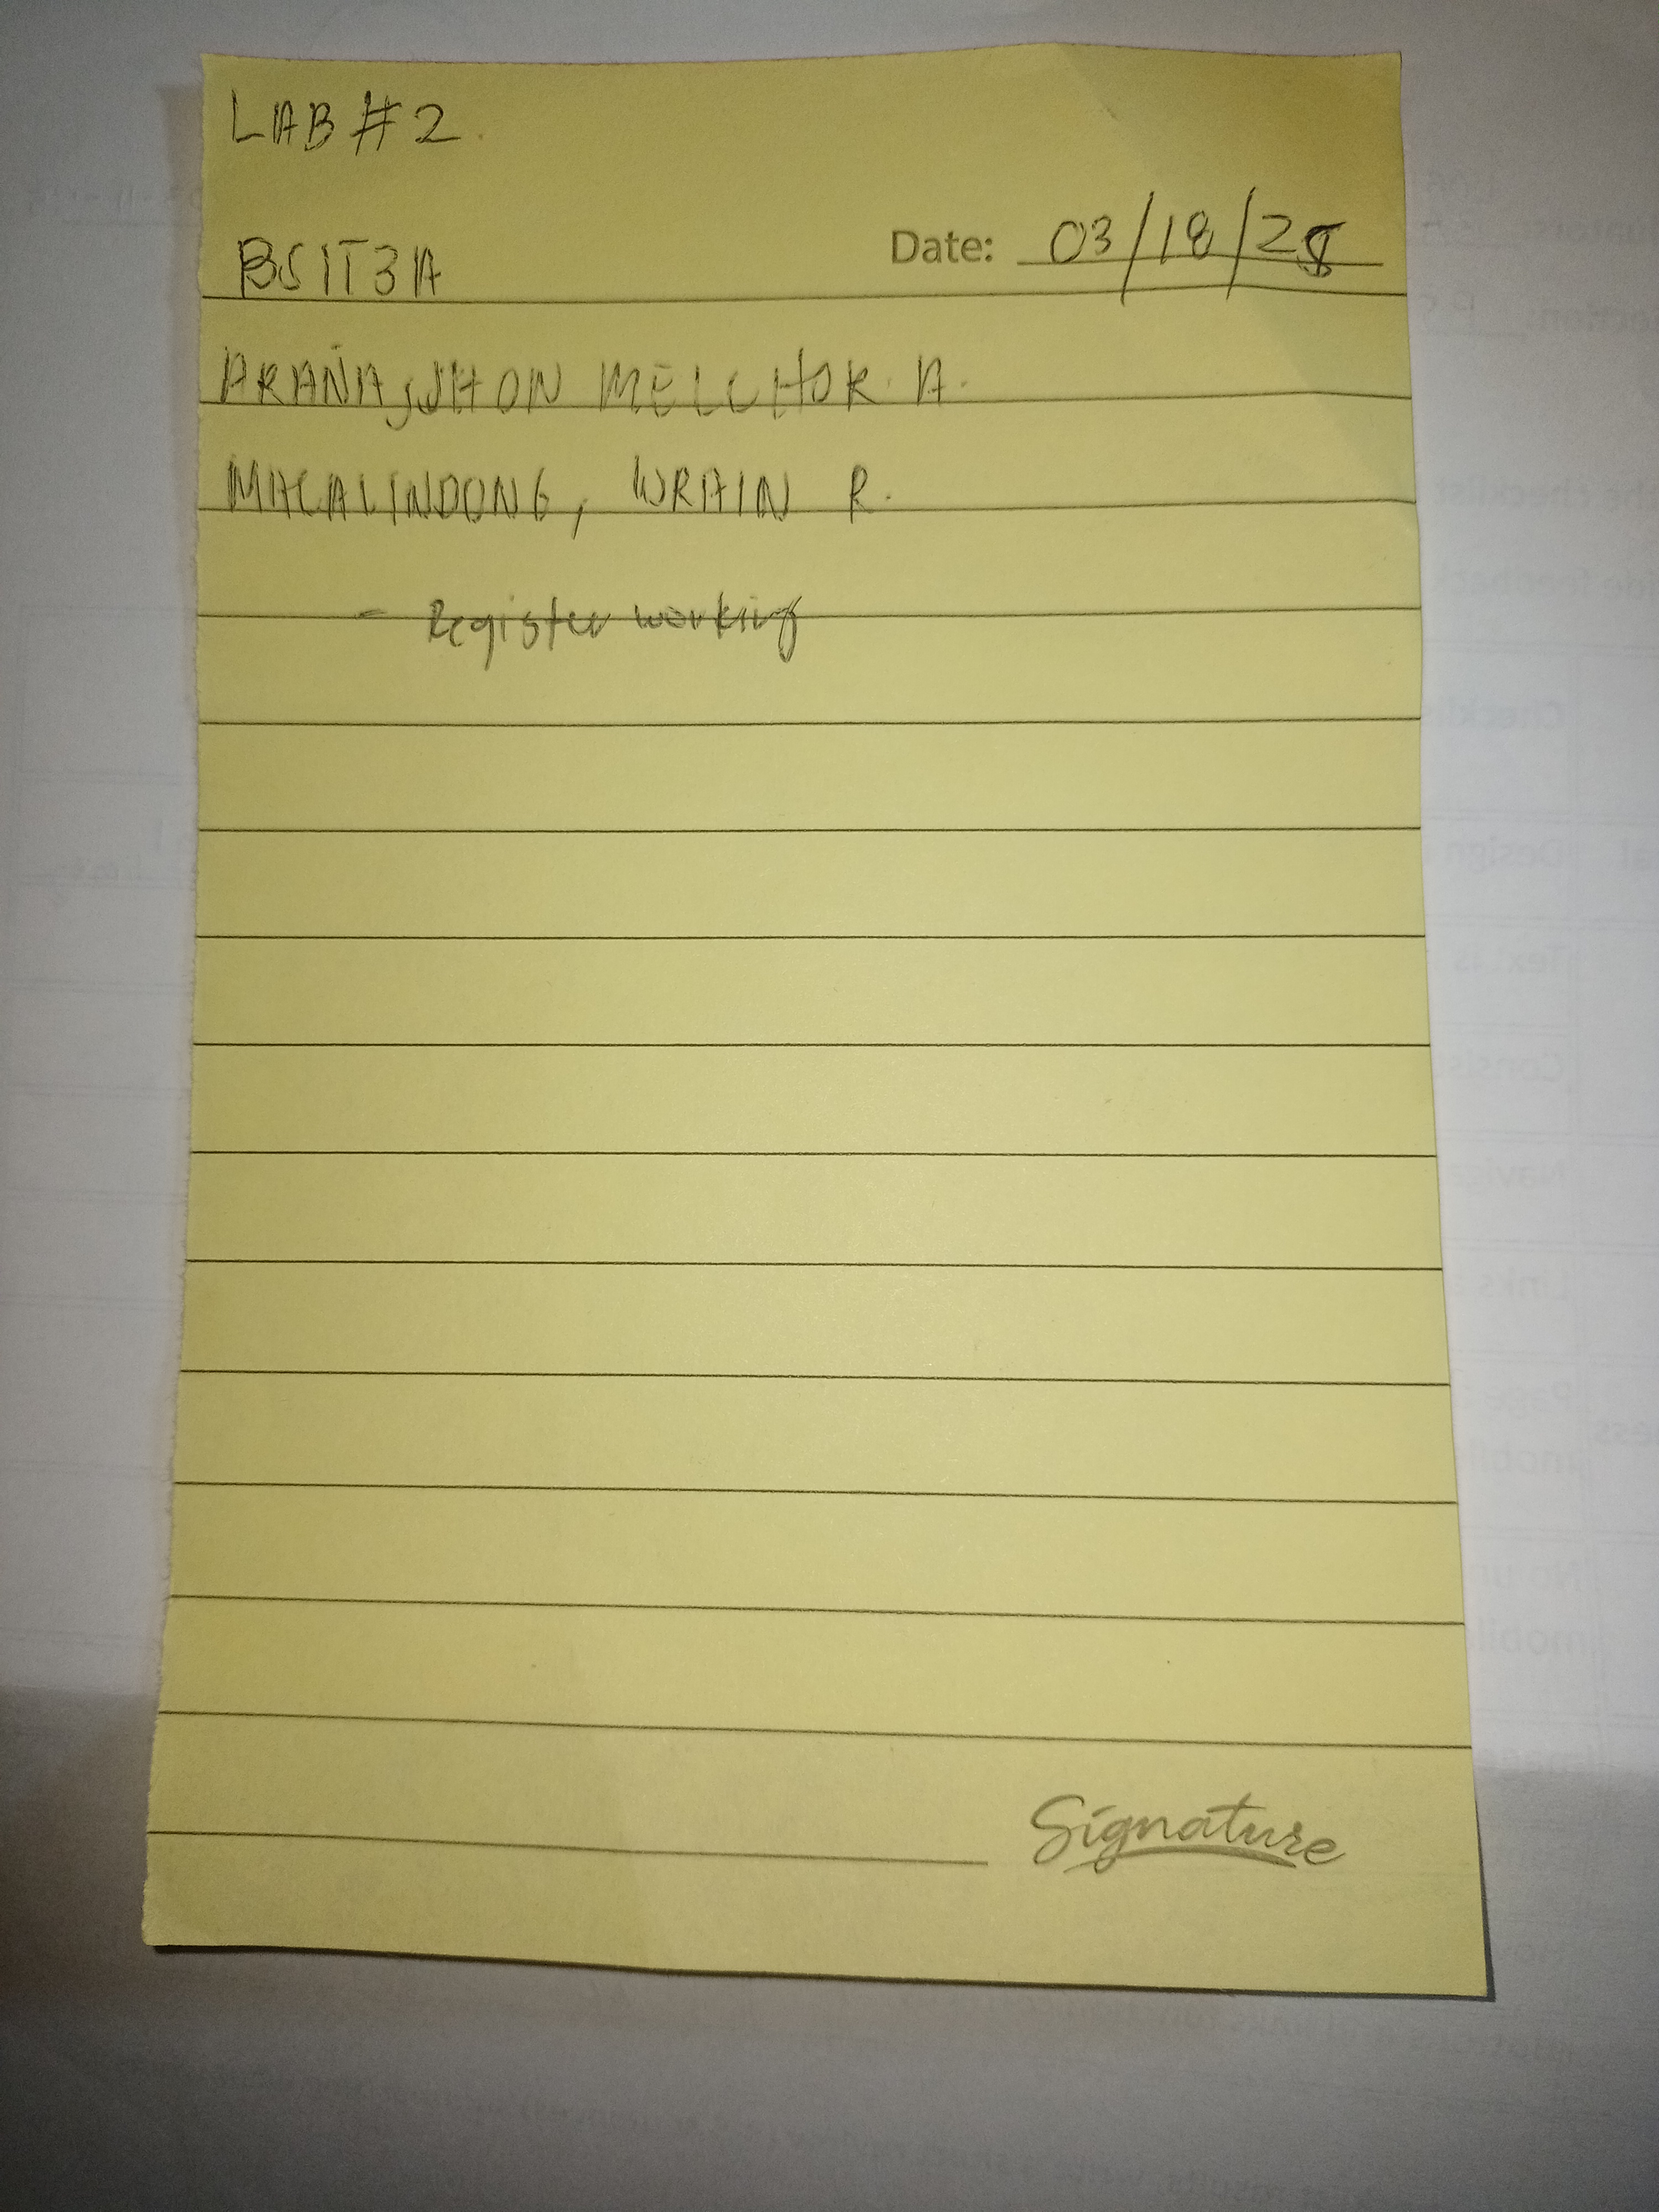 LAB #2
BSIT3A
Date: 03/18/25
ARAÑA, JHON MELCHOR A.
MACALINDONG, WRAIN R.
- Register working
Signature